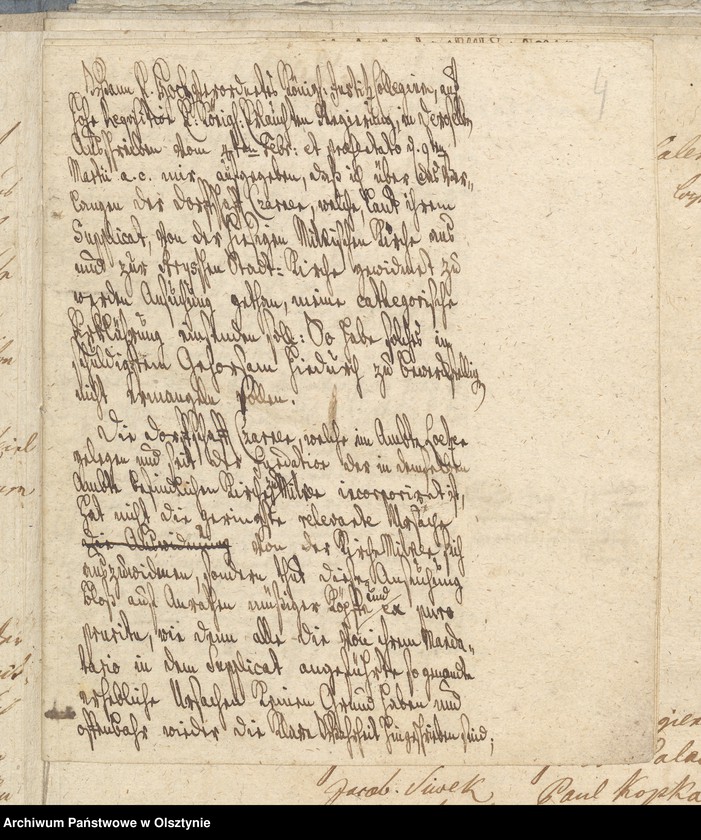 4
Wann E. Hochverordnetes Königl: Justitz Collegium, auf
hohe Requisition E: Königl: Preuss'en Regierung, in dersselben
Ausschreiben vom ten Febr: et præsentato d. 9 ten
Martii a.c. mir aufgegeben, daß ich über das Ver-
langen der Dorffschafft Czarne, welche, laut ihrem
Supplicat, von der hiesigen Milkischen Kirche aus
und zur Stadt-Kirche gewidmet zu
werden Ansuchung gethan, meine cathegorische
Erklährung einsenden soll: So habe solches in
schuldigstem Gehorsam hiedurch zu bewerckstellig
nicht ermangeln sollen.
Die Dorffschafft Czarne, welche im Ambte
gelegen und seit der Fundation der in demselben
Ambte befindlichen Kirche Milke incorporiret ist,
hat nicht die geringste relevante Ursache
die Auswidmung von der Kirche Milke sich
auszuwidmen, sondern thut diese Ansuchung
bloß auf Anrathen müßiger Köpffe und ex puro
pruritu, wie denn alle die von ihrem Manda-
tario in dem Supplicat angeführte so genandte
erhebliche Ursachen keinen Grund haben und
offenbahr wieder die klare Wahrheit hingeschrieben sind;
Jacob. Siwek Paul Kopka
Archiwum Państwowe w Olsztynie